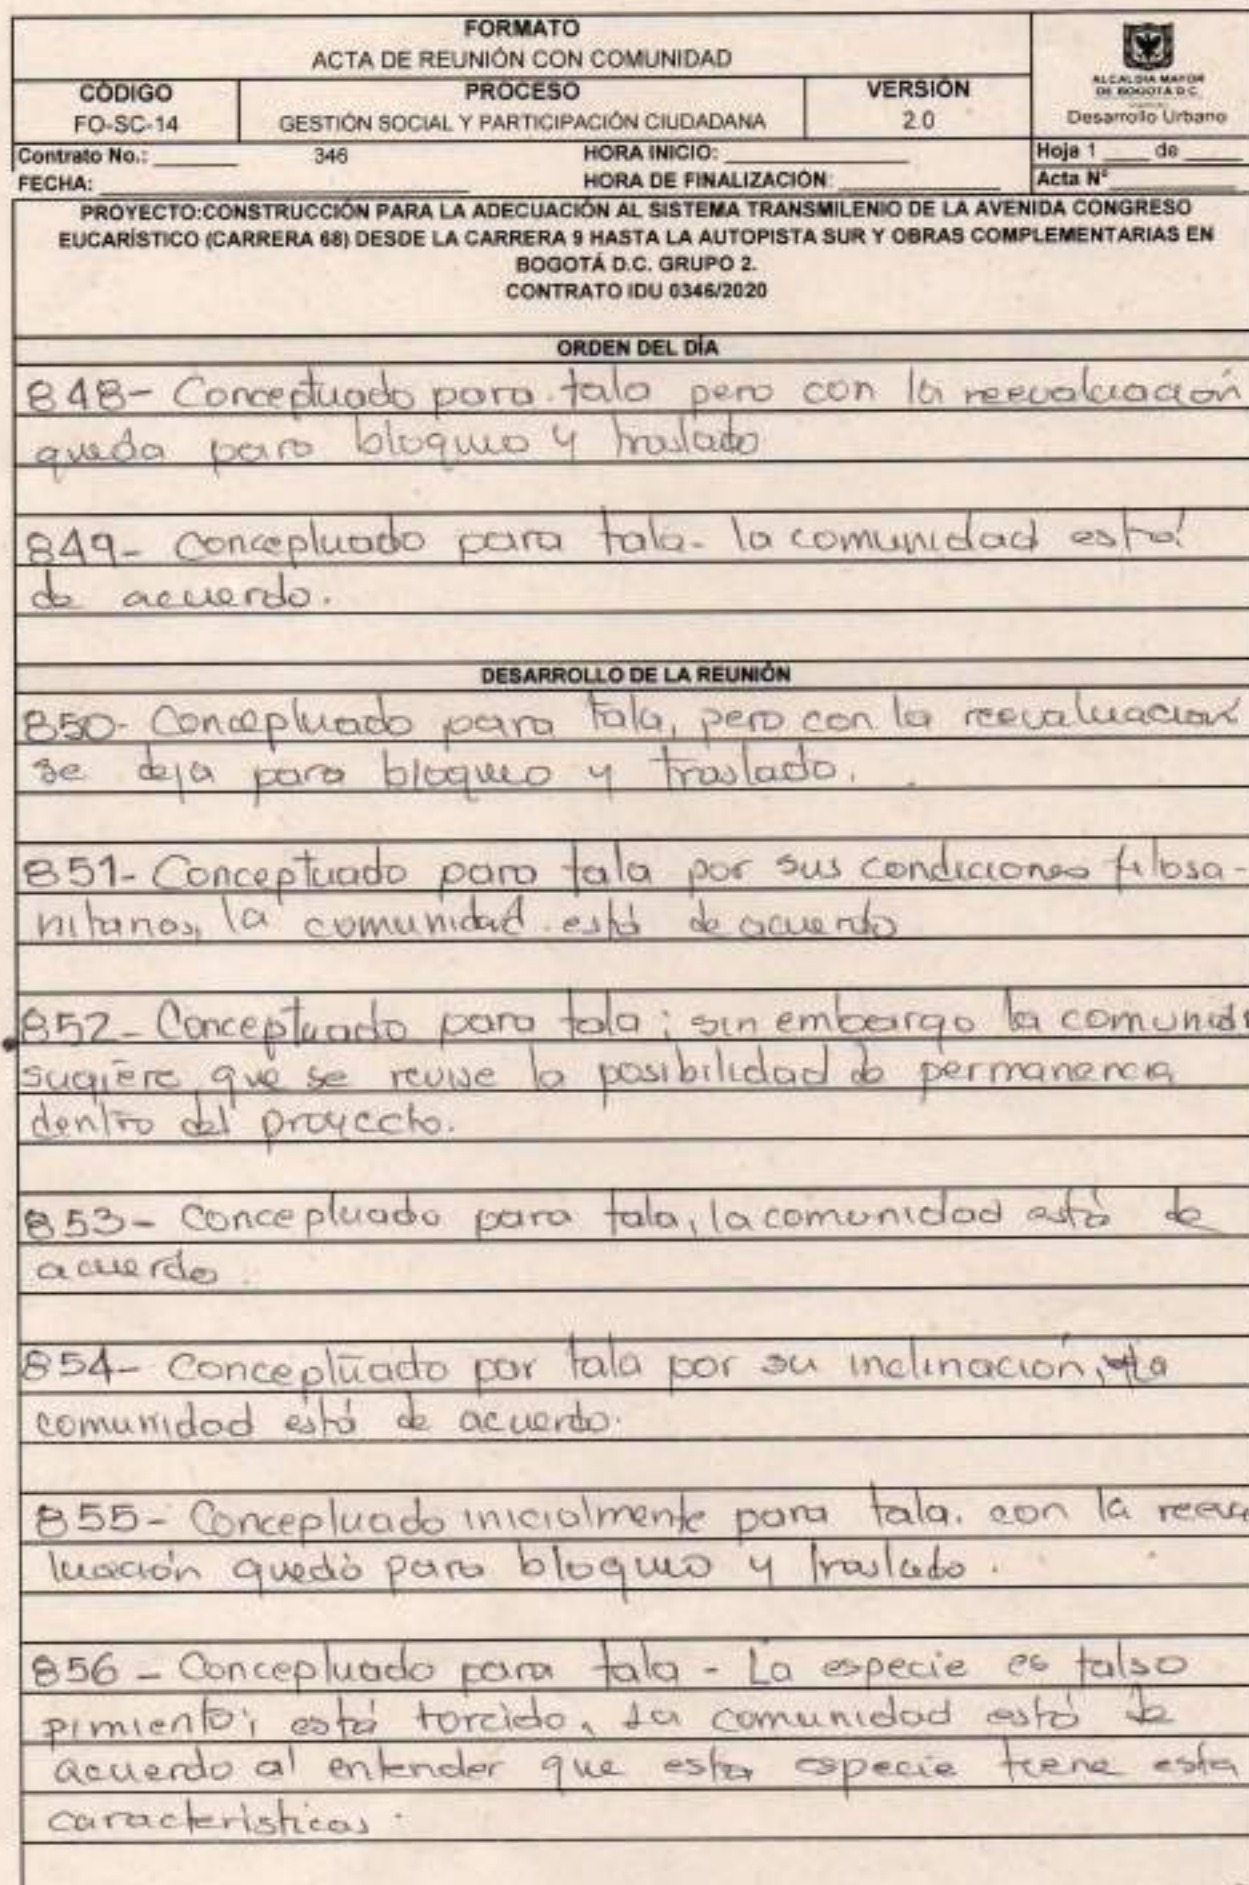 FORMATO
ACTA DE REUNIÓN CON COMUNIDAD
CÓDIGO
FO-SC-14
PROCESO
GESTIÓN SOCIAL Y PARTICIPACIÓN CIUDADANA
VERSIÓN
2.0
ALCALDÍA MAYOR
DE BOGOTÁ D.C.
Desarrollo Urbano
Contrato No.: 346 HORA INICIO:
Hoja 1 de
FECHA: HORA DE FINALIZACIÓN:
Acta N°
PROYECTO:CONSTRUCCIÓN PARA LA ADECUACIÓN AL SISTEMA TRANSMILENIO DE LA AVENIDA CONGRESO
EUCARÍSTICO (CARRERA 68) DESDE LA CARRERA 9 HASTA LA AUTOPISTA SUR Y OBRAS COMPLEMENTARIAS EN
BOGOTÁ D.C. GRUPO 2.
CONTRATO IDU 0346/2020
ORDEN DEL DÍA
848- Conceptuado para tala pero con la reevaluación
queda para bloqueo y traslado
849- Conceptuado para tala- la comunidad está
de acuerdo.
DESARROLLO DE LA REUNIÓN
850- Conceptuado para tala, pero con la reevaluación
se deja para bloqueo y traslado.
851- Conceptuado para tala por sus condiciones fitosa-
nitarias, la comunidad está de acuerdo
852- Conceptuado para tala; sin embargo la comunid
sugiere que se revise la posibilidad de permanencia
dentro del proyecto.
853- Conceptuado para tala, la comunidad está de
acuerdo.
854- Conceptuado por tala por su inclinación, la
comunidad está de acuerdo.
855- Conceptuado inicialmente para tala. con la reeva
luación quedó para bloqueo y traslado.
856- Conceptuado para tala - La especie es falso
pimiento; está torcido, la comunidad está de
acuerdo al entender que esta especie tiene esta
características.